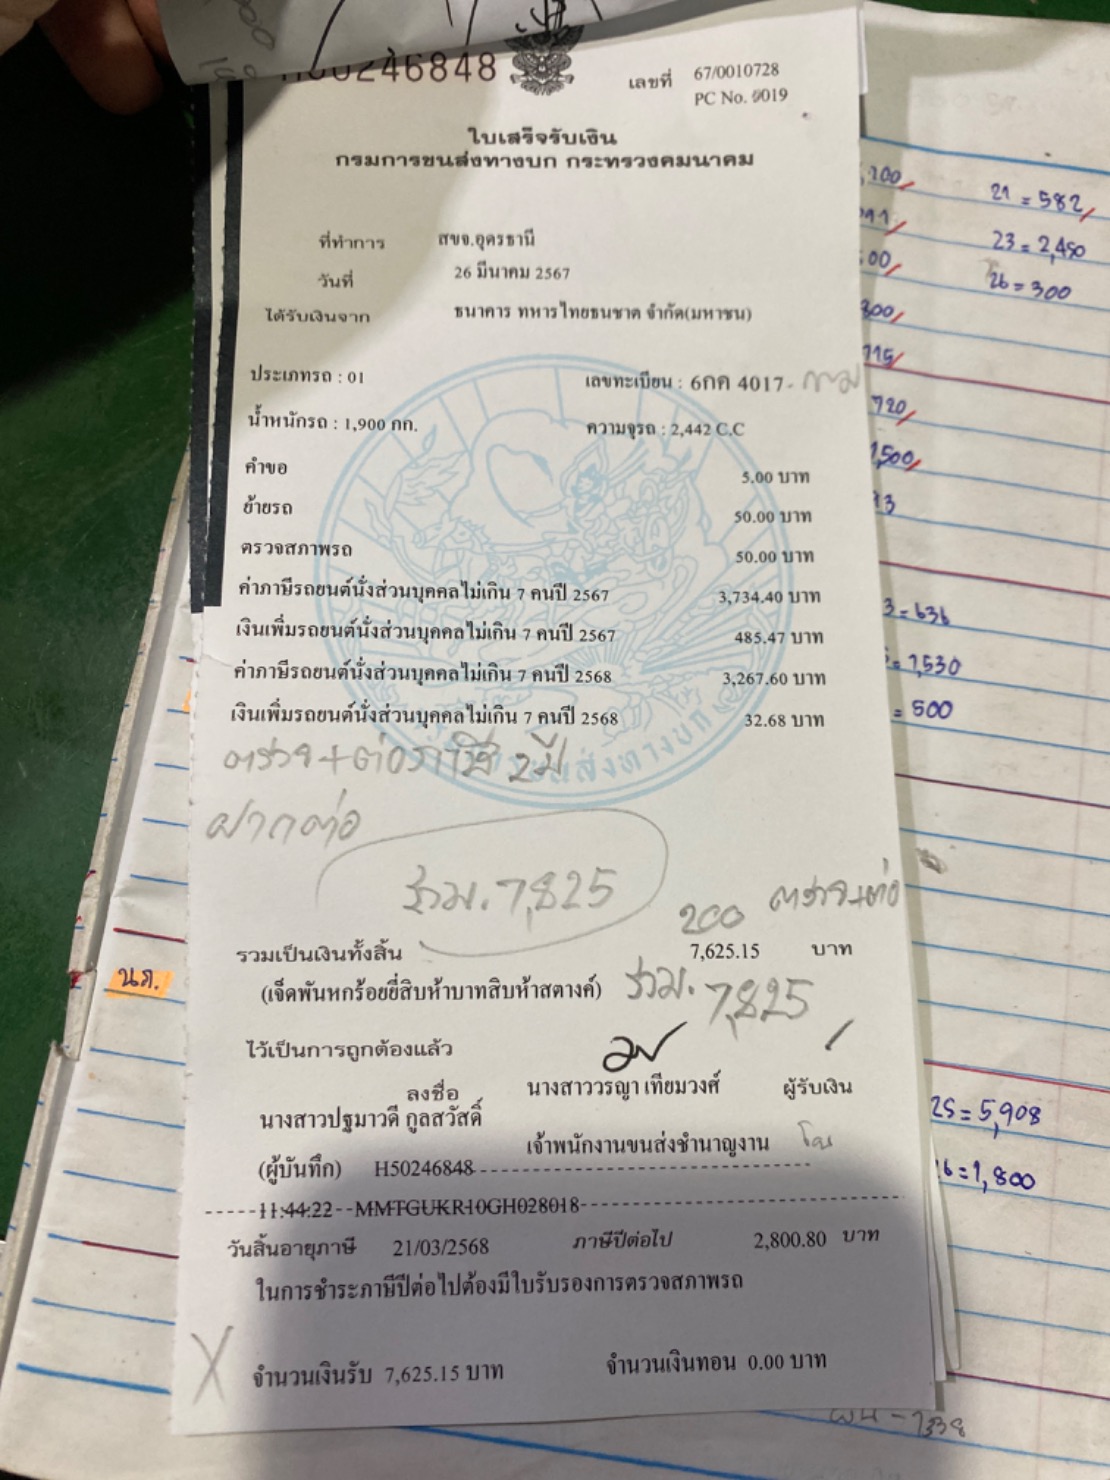 00246848
เลขที่ 67/0010728
PC No. 0019
ใบเสร็จรับเงิน
กรมการขนส่งทางบก กระทรวงคมนาคม
ที่ทำการ สขจ.อุดรธานี
วันที่ 26 มีนาคม 2567
ได้รับเงินจาก ธนาคาร ทหารไทยธนชาต จำกัด(มหาชน)
ประเภทรถ : 01 เลขทะเบียน : 6กค 4017
น้ำหนักรถ : 1,900 กก. ความจุรถ : 2,442 C.C
คำขอ 5.00 บาท
ย้ายรถ 50.00 บาท
ตรวจสภาพรถ 50.00 บาท
ค่าภาษีรถยนต์นั่งส่วนบุคคลไม่เกิน 7 คนปี 2567 3,734.40 บาท
เงินเพิ่มรถยนต์นั่งส่วนบุคคลไม่เกิน 7 คนปี 2567 485.47 บาท
ค่าภาษีรถยนต์นั่งส่วนบุคคลไม่เกิน 7 คนปี 2568 3,267.60 บาท
เงินเพิ่มรถยนต์นั่งส่วนบุคคลไม่เกิน 7 คนปี 2568 32.68 บาท
ตรวจ+ต่อภาษี 2 ปี
ฝากต่อ
รวม. 7,825
200 ตรวจ+ต่อ
รวมเป็นเงินทั้งสิ้น 7,625.15 บาท
(เจ็ดพันหกร้อยยี่สิบห้าบาทสิบห้าสตางค์) รวม. 7,825
ไว้เป็นการถูกต้องแล้ว
ลงชื่อ นางสาววรญา เทียมวงศ์ ผู้รับเงิน
นางสาวปฐมาวดี กูลสวัสดิ์ เจ้าพนักงานขนส่งชำนาญงาน
(ผู้บันทึก) H50246848
11:44:22 MMTGUKR10GH028018
วันสิ้นอายุภาษี 21/03/2568 ภาษีปีต่อไป 2,800.80 บาท
ในการชำระภาษีปีต่อไปต้องมีใบรับรองการตรวจสภาพรถ
จำนวนเงินรับ 7,625.15 บาท จำนวนเงินทอน 0.00 บาท
นภ.
21 = 582
23 = 2,450
26 = 300
720
1,500
3 = 636
= 1,530
= 500
25 = 5,908
16 = 1,800